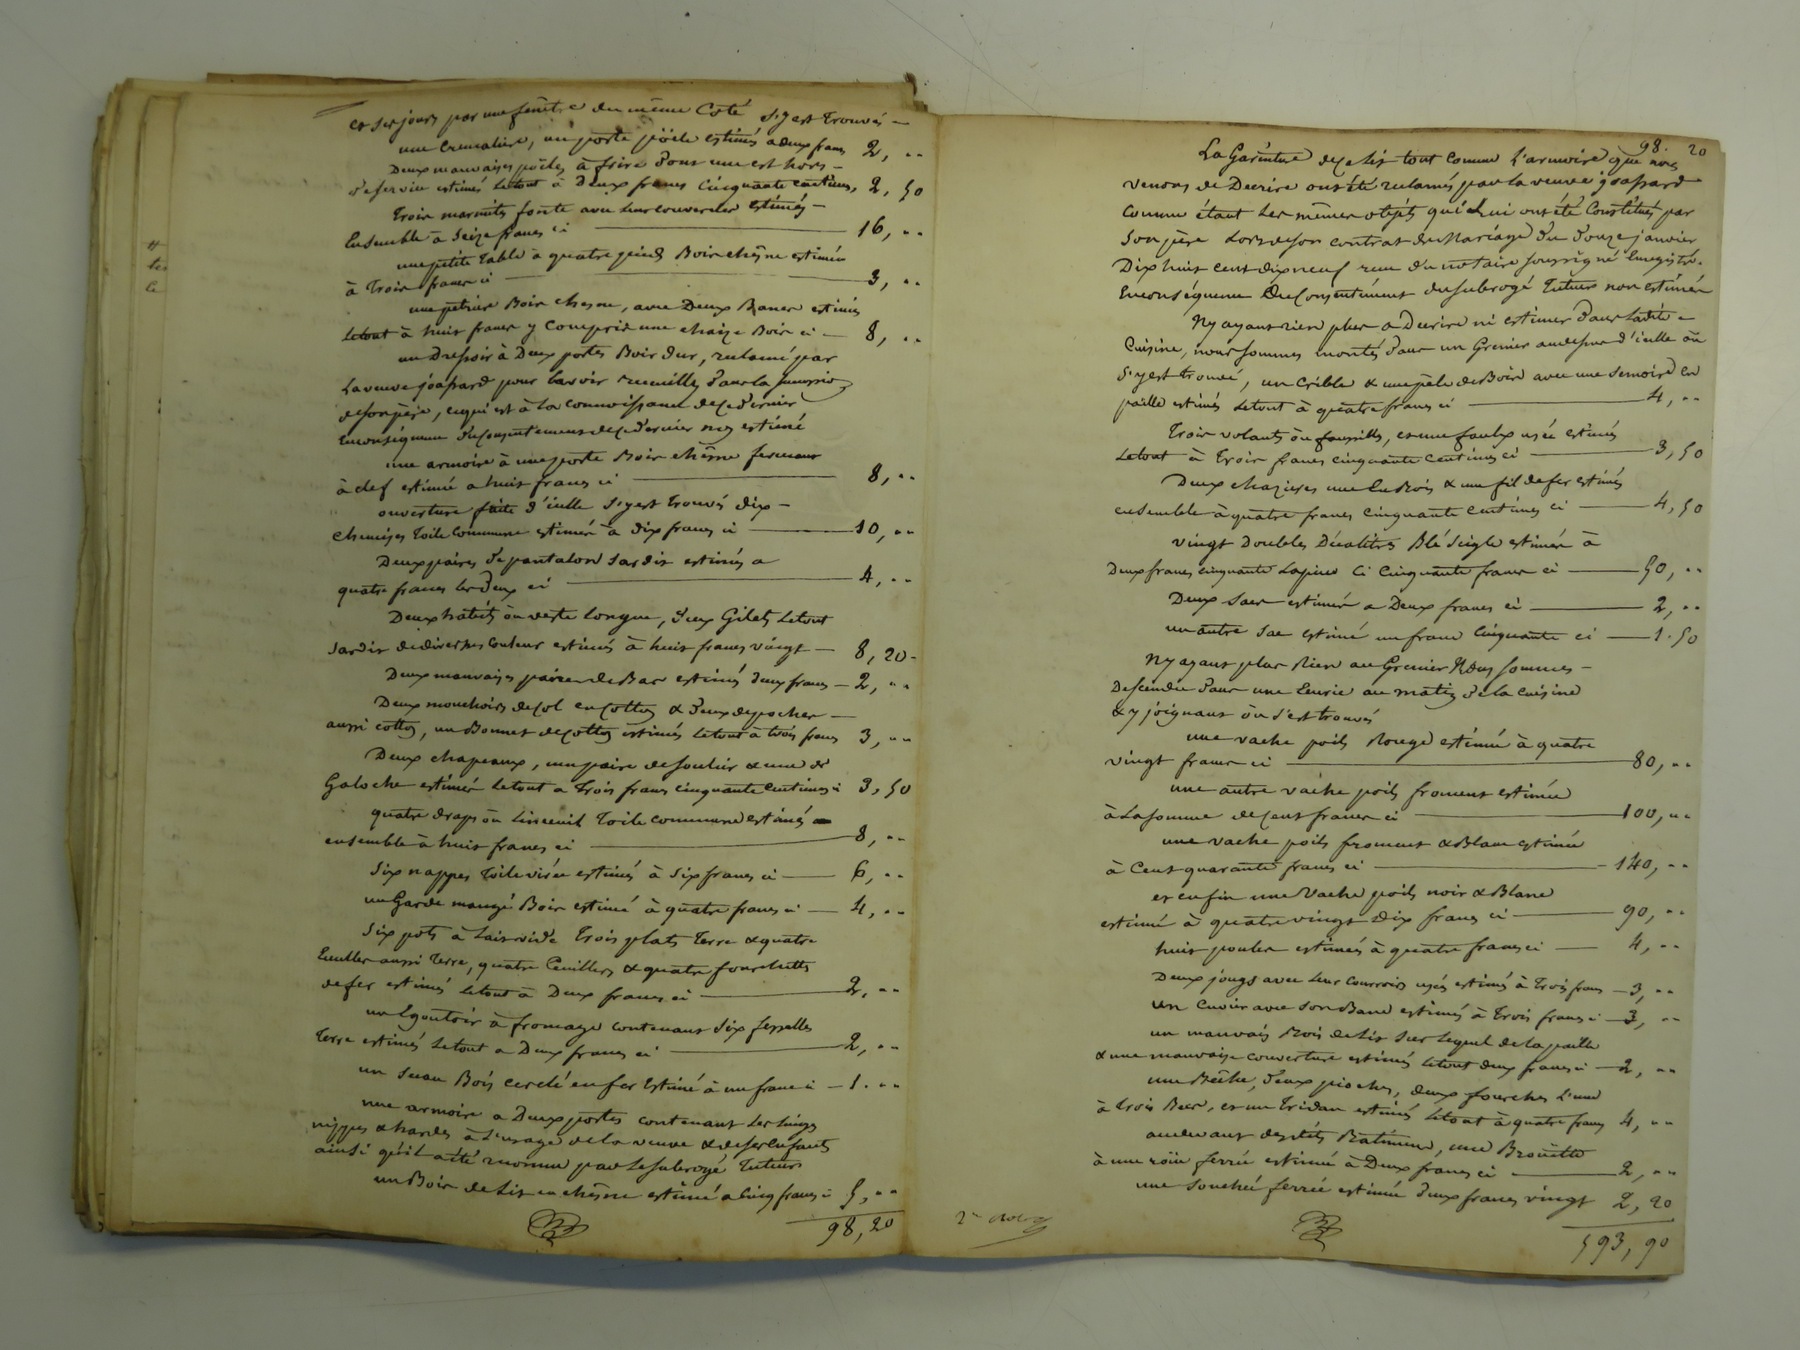 et ses jours par une fenêtre du même Coté s'y est trouvés —
une Cremaliere, un porte pöele estimés a deux francs 2, ""
Deux mauvaises poëles à frire dont une est hors —
de service estimés le tout à Deux francs Cinquante centimes, 2, 50
Trois marmites fonte avec leur couvercles estimés —
Ensemble à Seize francs ci — 16, ""
une petite Table à quatre pieds Bois chêne estimée
à Trois francs ci — 3, ""
une pétrière Bois chesne, avec Deux Bancs estimés
le tout à huit francs y Compris une chaize Bois ci — 8, ""
un Dressoir à Deux portes Bois dur, reclamé par
La veuve joassard pour l'avoir recueilly dans la succession
de son père, ce qui est à la connoissance de ce dernier
En conséquence du consentement de ce dernier non estimé
une armoire à une porte Bois chêsne fermant
à clef estimée a huit francs ci — 8, ""
ouverture faite d'icelle s'y est trouvés dix —
chemises Toile commune estimés à dix francs ci — 10, ""
Deux paires de pantalon sardis estimés a
quatre francs les deux ci — 4, ""
Deux habits ou veste longue, deux Gilets le tout
sardis de diverses Couleur estimés à huit francs vingt — 8, 20 -
Deux mauvaises paires de Bas estimés deux francs — 2, ""
Deux mouchoirs de col en cotton & deux de poches —
aussi cotton, un Bonnet de cotton estimés le tout à trois francs 3, ""
Deux chapeaux, une paire de soulier & une de
Galoche estimés le tout a Trois francs cinquante centimes ci 3, 50
quatre draps ou Linceuil Toile commune estimés
ensemble à huit francs ci — 8, ""
Six nappes Toile usée estimés à Six francs ci — 6, ""
un Garde mangé Bois estimé à quatre francs ci — 4, ""
Six pots à lait vide Trois plats Terre & quatre
Ecuelles aussi Terre, quatre Cuillers & quatre fourchettes
de fer estimés le tout à Deux francs ci — 2, ""
un Egoutoir à fromage contenant Six fesselles
Terre estimés le tout a Deux francs ci — 2, ""
un Seau Bois cerclé en fer Estimé à un franc ci — 1. ""
une armoire a Deux portes contenant les linges
nippes & hardes à l'usage de la veuve & de ses Enfants
ainsi qu'il a été reconnu par le subrogé Tuteur
un Bois de Lit en chêsne estimé a Cinq francs ci 5, ""
98, 20
98. 20
La Garniture de ce lit tout comme l'armoire que nous
venons de Decrire ont été reclamés par la veuve joassard
Comme étant les mêmes objets qui lui ont été Constitués par
Son père Lors de son contrat de Mariage du douze janvier
Dix huit cent dix neuf reçu du notaire soussigné Enregistré.
En conséquence Du Consentement du subrogé Tuteur non estimée
N'y ayant rien plus a Decrire ni estimer dans ladite —
Cuisine, nous sommes montés dans un Grenier au dessus d'icelle où
s'y est trouvé, un Crible & une pèle de Bois avec une semoire en
paille estimés le tout à quatre francs ci — 4, ""
Trois volants ou faussilles, et une faulx usée estimés
Le tout à Trois francs cinquante Centimes ci — 3, 50
Deux chazieres une En Bois & une fil de fer estimés
ensemble à quatre francs Cinquante Centimes ci — 4, 50
vingt Doubles Décalitres Blé Seigle estimés à
Deux francs cinquante La piece Ci Cinquante francs ci — 50, ""
Deux Sacs estimés a Deux francs ci — 2, ""
un autre Sac estimé un franc Cinquante ci — 1. 50
N'y ayant plus Rien au Grenier Nous Sommes —
Descendu dans une Ecurie au matin de la Cuisine
& y joignant où s'est trouvés
une vache poils Rouge estimée à quatre
vingt francs ci — 80, ""
une autre vache poils froment estimée
à La somme de Cent francs ci — 100, ""
une vache poils froment & Blanc estimée
à Cent quarante francs ci — 140, ""
et enfin une Vache poils noir & Blanc
estimé à quatre vingt dix francs ci — 90, ""
huit poules estimées à quatre francs ci — 4, ""
Deux jougs avec leur Courroies usés estimés à Trois francs — 3, ""
un Cuvier avec son Banc estimés à Trois francs ci — 3, ""
un mauvais Bois de Lit sur lequel de la paille
& une mauvaise couverture estimés le tout deux francs ci — 2, ""
une Bêche, deux pioches, deux fourches l'une
à Trois Becs, et un Tridan estimés le tout à quatre francs 4, ""
au devant desdits Bâtiment, une Brouëtte
à une roüe ferrée estimée à Deux francs ci — 2, ""
une souchée ferrée estimée deux francs vingt 2, 20
593, 90